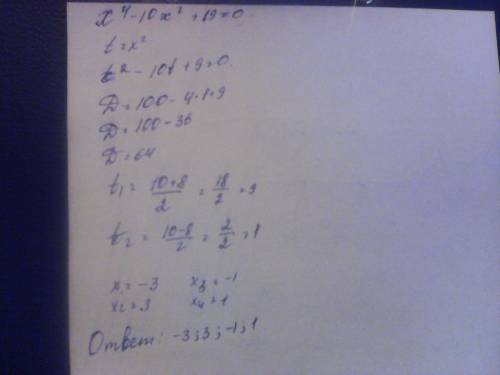 x⁴-10x²+9=0.
t=x²
t²-10t+9=0.
D=100-4·1·9
D=100-36
D=64
t₁= (10+8)/2 = 18/2 =9
t₂= (10-8)/2 = 2/2 =1
x₁=-3 x₃=-1
x₂=3 x₄=1
Ответ: -3;3;-1;1